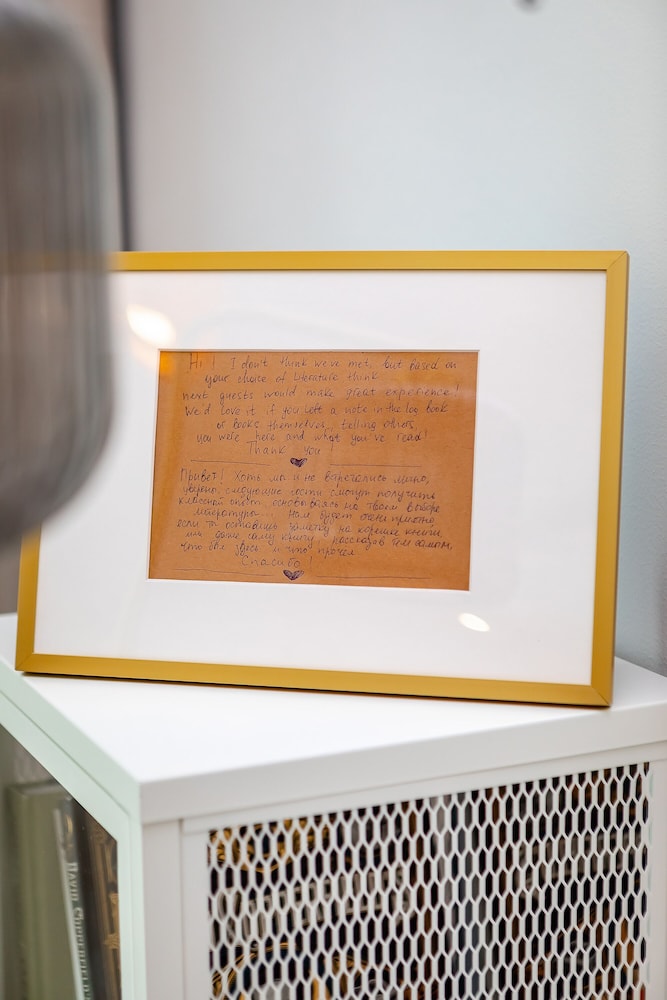 Hi! I don't think we've met, but based on
your choice of literature think
next guests would make great experience!
We'd love it if you left a note in the log book
or books themselves, telling others
you were here and what you've read!
Thank you
Привет! Хоть мы и не встречались лично,
уверена, следующие гости смогут получить
классный опыт, основываясь на твоем выборе
литературы... Нам будет очень приятно,
если ты оставишь заметку на корешке книги
или даже саму книгу, рассказав тем самым,
что был здесь и что прочел
Спасибо!